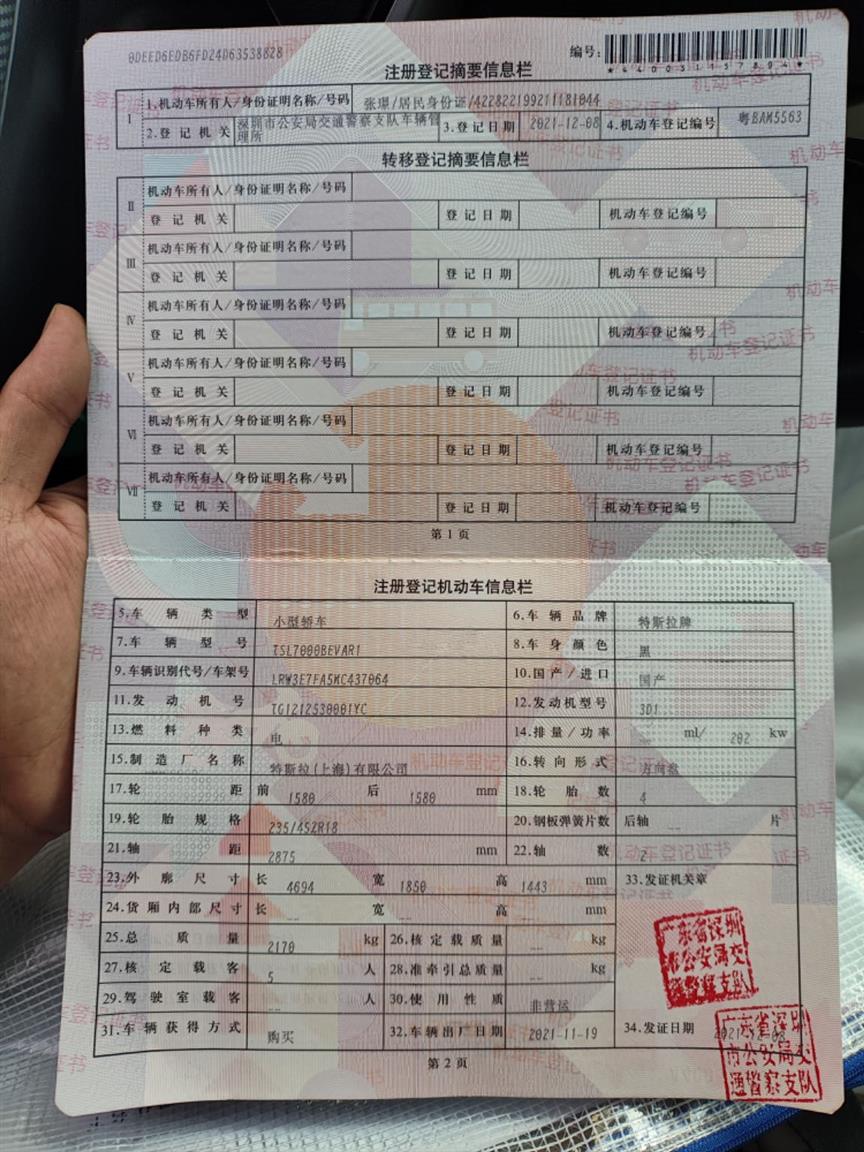 0DEED6EDB6FD24D63538828
编号:
*440031157894*
注册登记摘要信息栏
I
1.机动车所有人/身份证明名称/号码 张璟/居民身份证/422822199211181044
2.登记机关 深圳市公安局交通警察支队车辆管理所 3.登记日期 2021-12-08 4.机动车登记编号 粤BAM5563
转移登记摘要信息栏
II 机动车所有人/身份证明名称/号码
登记机关 登记日期 机动车登记编号
III 机动车所有人/身份证明名称/号码
登记机关 登记日期 机动车登记编号
IV 机动车所有人/身份证明名称/号码
登记机关 登记日期 机动车登记编号
V 机动车所有人/身份证明名称/号码
登记机关 登记日期 机动车登记编号
VI 机动车所有人/身份证明名称/号码
登记机关 登记日期 机动车登记编号
VII 机动车所有人/身份证明名称/号码
登记机关 登记日期 机动车登记编号
第1页
注册登记机动车信息栏
5.车辆类型 小型轿车 6.车辆品牌 特斯拉牌
7.车辆型号 TSL7000BEVAR1 8.车身颜色 黑
9.车辆识别代号/车架号 LRW3E7FA5MC437064 10.国产/进口 国产
11.发动机号 TG1212530001YC 12.发动机型号 3D1
13.燃料种类 电 14.排量/功率 -- ml/ 202 kw
15.制造厂名称 特斯拉(上海)有限公司 16.转向形式 方向盘
17.轮距 前 1580 后 1580 mm 18.轮胎数 4
19.轮胎规格 235/45ZR18 20.钢板弹簧片数 后轴 -- 片
21.轴距 2875 mm 22.轴数 2
23.外廓尺寸 长 4694 宽 1850 高 1443 mm 33.发证机关章
24.货厢内部尺寸 长 -- 宽 -- 高 -- mm
25.总质量 2170 kg 26.核定载质量 -- kg
27.核定载客 5 人 28.准牵引总质量 -- kg
29.驾驶室载客 -- 人 30.使用性质 非营运
31.车辆获得方式 购买 32.车辆出厂日期 2021-11-19 34.发证日期 2021-12-08
广东省深圳
市公安局交
通警察支队
广东省深圳
市公安局交
通警察支队
第2页